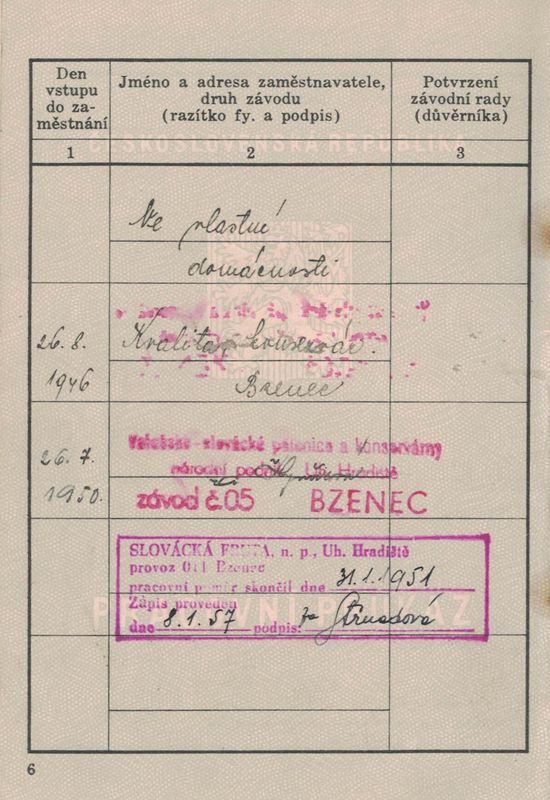 Den
vstupu
do za-
městnání
Jméno a adresa zaměstnavatele,
druh závodu
(razítko fy. a podpis)
Potvrzení
závodní rady
(důvěrníka)
1
2
3
ČESKOSLOVENSKÁ REPUBLIKA
Ve vlastní
domácnosti
26. 8.
1946
Kvalita, konservár.
Bzenec
26. 7.
1950.
slovácké a konservárny
národní podnik Uh. Hradiště
závod č. 05 BZENEC
SLOVÁCKÁ FRUTA, n. p., Uh. Hradiště
provoz 011 Bzenec
pracovní poměr skončil dne 31.1.1951
Zápis proveden
dne 8.1.57 podpis:
PRACOVNÍ PRŮKAZ
6